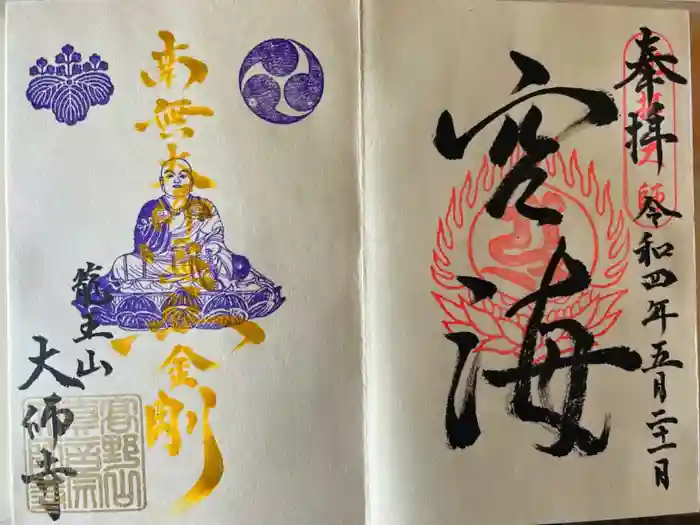 奉拝
令和四年五月二十一日
空海
南無大師遍照金剛
龍王山
大師寺